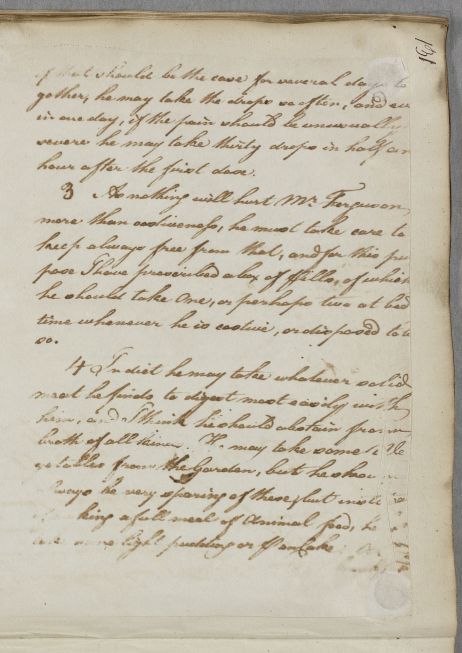 191
if that should be the case for several days to
gether, he may take the drops so often, and even
in one day, if the pain should be unusually
severe he may take thirty drops in half an
hour after the first dose.
3 As nothing will hurt Mr. Ferguson
more than costiveness, he must take care to
keep always free from that, and for this pur
pose I have prescribed a box of Pills, of which
he should take One, or perhaps two at bed
time whenever he is costive, or disposed to be
so.
4 In diet he may take whatever solid
meat he finds to digest most easily with
him, and I think he should abstain from
broth of all kinds. He may take some Ve
getables from the Garden, but he should
always be very sparing of these, but instead
king a full meal of Animal food, he
some light pudding or Pancake